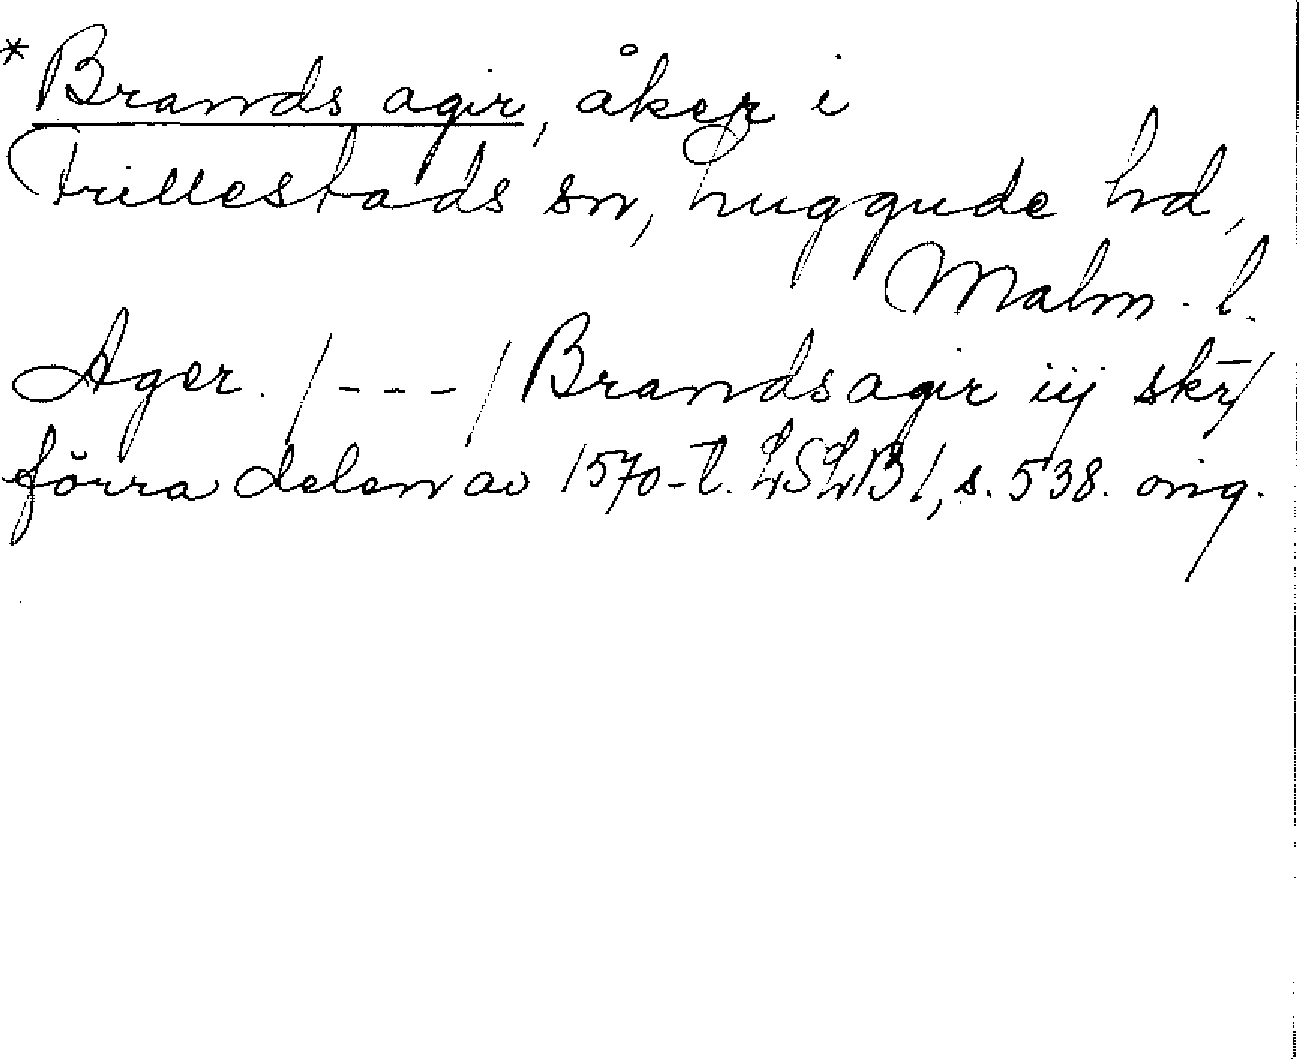 *Brands agir, åker i
Fillestads sn, Luggude hd,
Malm. l.
Ager. /---/ Brandsagir iij skr̄/
förra delen av 1570-t. LSLB 1, s. 538. orig.